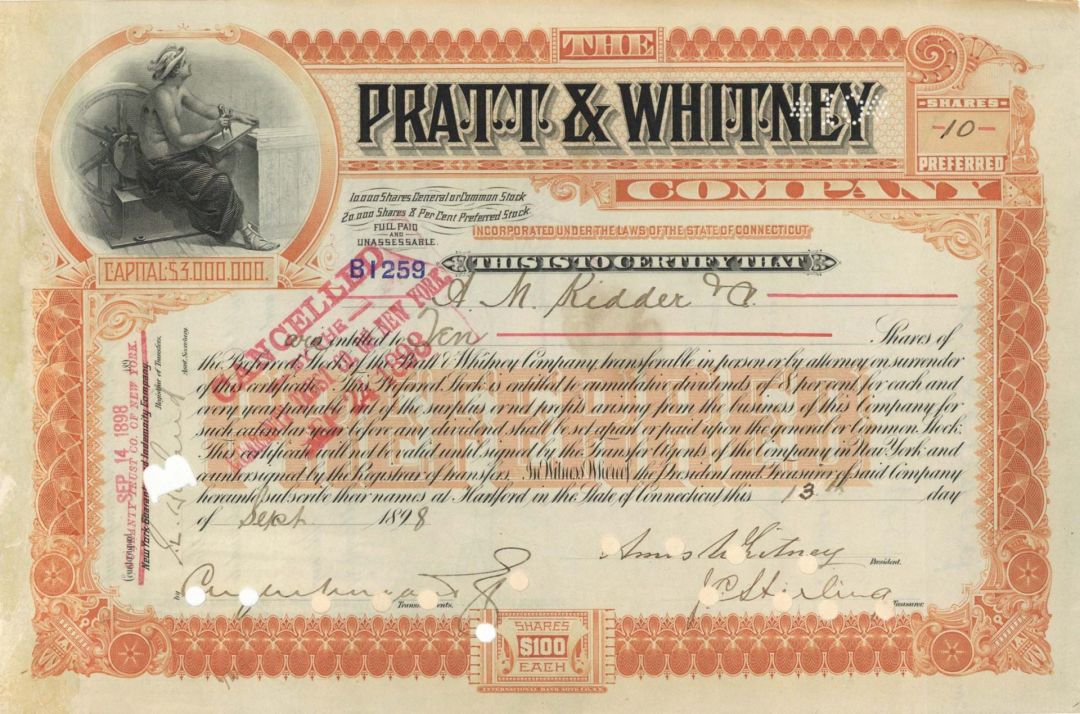 THE
PRATT & WHITNEY
COMPANY
SHARES
10
PREFERRED
10,000 Shares General or Common Stock
20,000 Shares 8 Per Cent Preferred Stock
FULL PAID
AND
UNASSESSABLE.
INCORPORATED UNDER THE LAWS OF THE STATE OF CONNECTICUT
CAPITAL $3,000,000.
B1259
THIS IS TO CERTIFY THAT
A. M. Kidder & Co.
are entitled to Ten Shares of
the Preferred Stock of The Pratt & Whitney Company, transferable in person or by attorney on surrender
of this certificate. This Preferred Stock is entitled to cumulative dividends of 8 per cent. for each and
every year payable out of the surplus or net profits arising from the business of this Company for
such calendar year before any dividend shall be set apart or paid upon the general or Common Stock.
This certificate will not be valid until signed by the Transfer Agents of the Company in New York and
countersigned by the Registrar of Transfers. In Witness Whereof the President and Treasurer of said Company
hereunto subscribe their names at Hartford in the State of Connecticut this 13th day
of Sept. 1898
Amos Whitney
President.
J. C. Stirling
Treasurer.
by
Transfer Agents.
CANCELLED
BY THE
TRUST CO. OF NEW YORK
1898
PREFERRED
Countersigned
SEP 14 1898
GUARANTY TRUST CO. OF NEW YORK.
New York Guaranty and Indemnity Company
Registrar of Transfers.
189
Asst. Secretary
SHARES
$100
EACH
P & W
P & W
INTERNATIONAL BANK NOTE CO. N.Y.